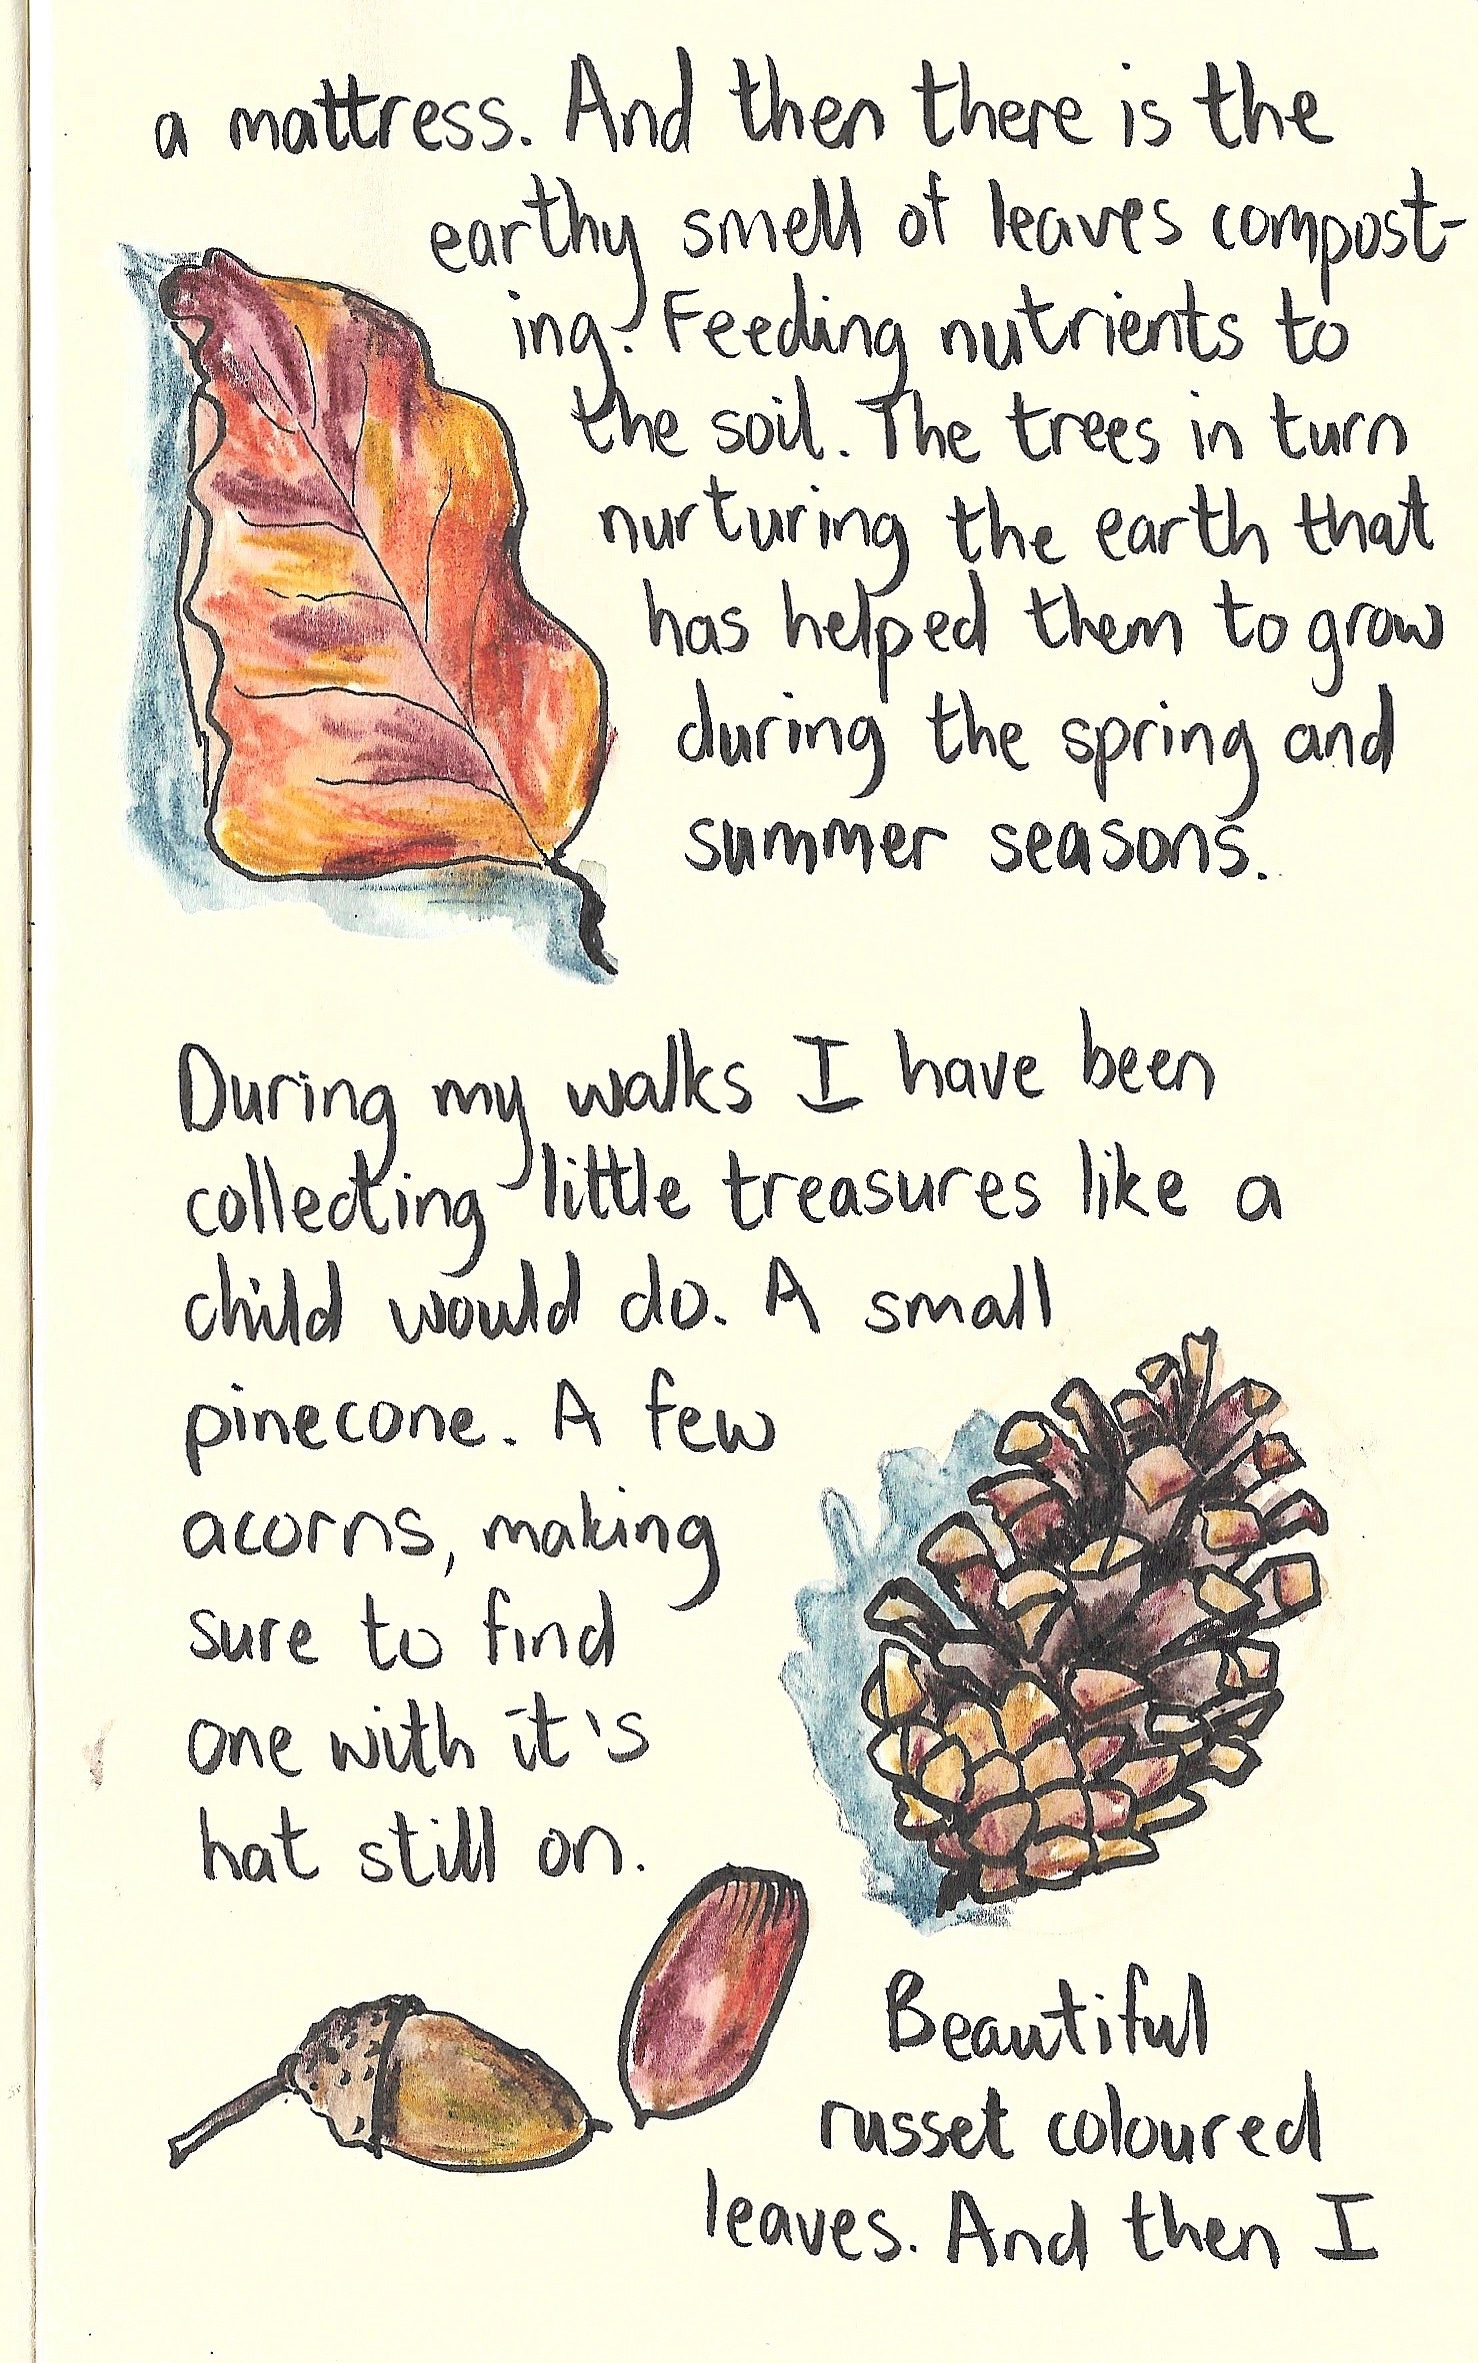 a mattress. And then there is the
earthy smell of leaves compost-
ing. Feeding nutrients to
the soil. The trees in turn
nurturing the earth that
has helped them to grow
during the spring and
summer seasons.
During my walks I have been
collecting little treasures like a
child would do. A small
pinecone. A few
acorns, making
sure to find
one with it's
hat still on.
Beautiful
russet coloured
leaves. And then I